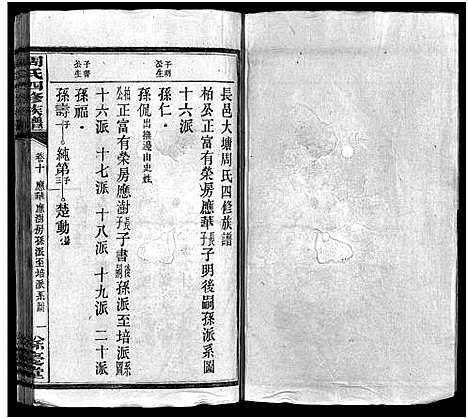 長邑大塘周氏四修族譜
柏公正富有榮房應華長子子明後嗣孫派系圖
十六派
子明公生
孫仁
孫侃 出撫邊山史姓
柏公正富有榮房應澍長子子書後嗣孫派至培派系圖
十六派 十七派 十八派 十九派 二十派
子書公生
孫福
孫壽 子 純第三 子 楚動
周氏四修族譜
卷十 應華應澍房孫派至培派系圖 一